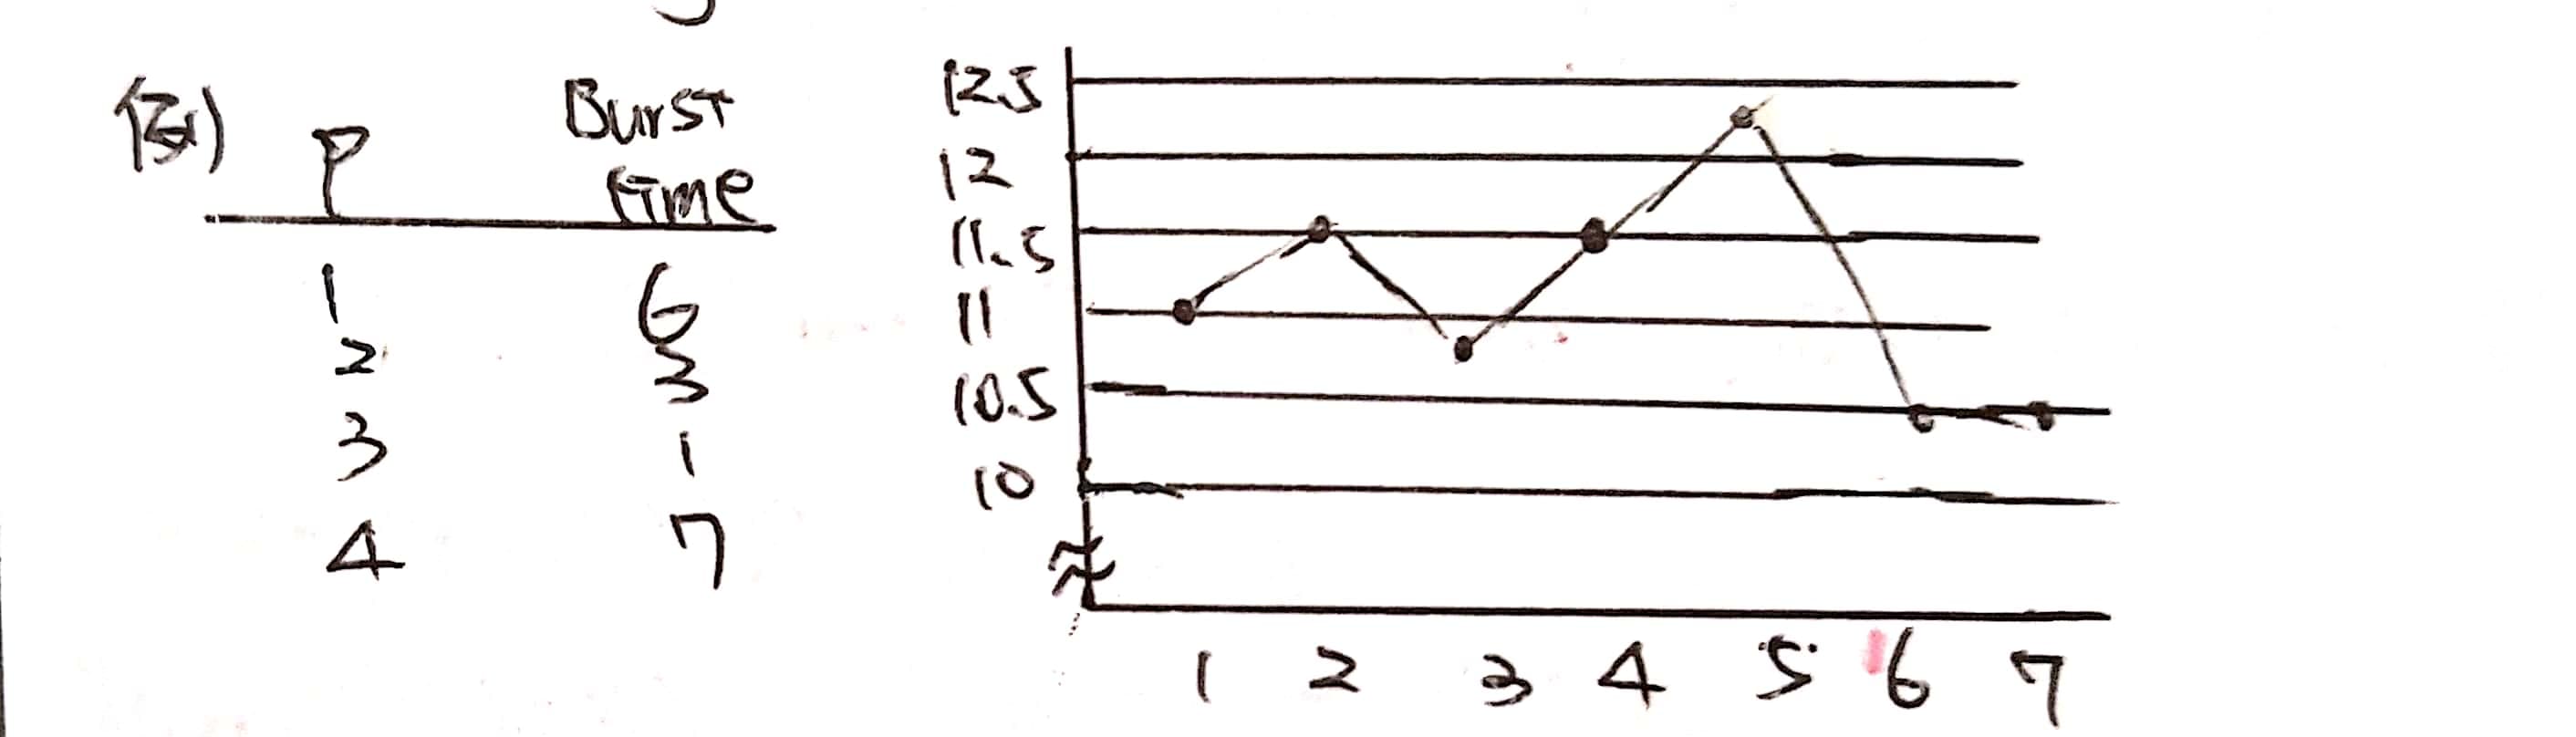 例) P Burst time
1 6
2 3
3 1
4 7
12.5
12
11.5
11
10.5
10
1 2 3 4 5 6 7